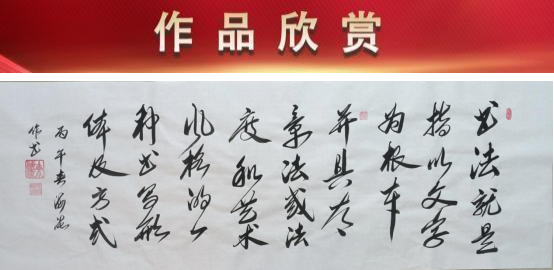 作品欣赏
书法就是
指以文字
为根本
并具有
章法或法
度和艺术
风格的一
种书写形
体及方式
丙午春
伟书